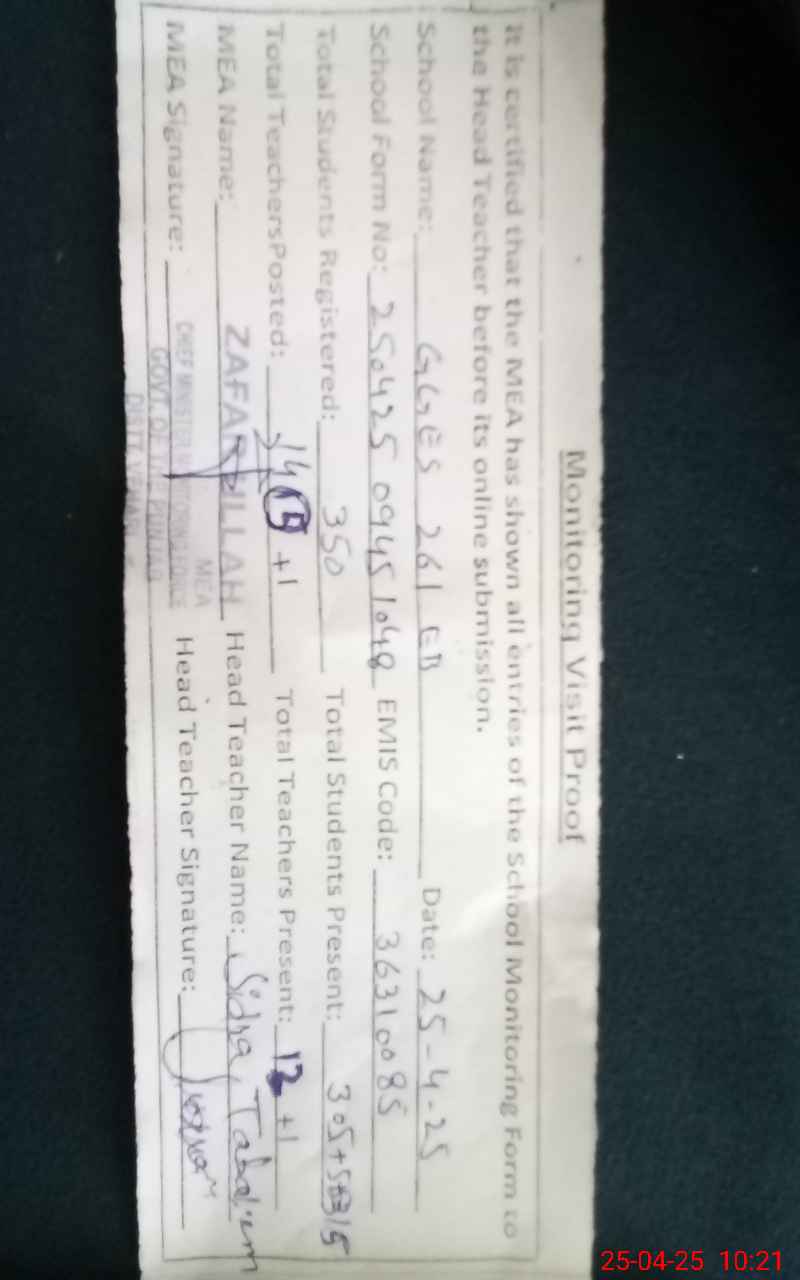 Monitoring Visit Proof
It is certified that the MEA has shown all entries of the School Monitoring Form to
the Head Teacher before its online submission.
School Name: GGES 261 EB Date: 25-4-25
School Form No: 250425 094451048 EMIS Code: 36310085
Total Students Registered: 350 Total Students Present: 305+5
Total Teachers Posted: 14 15 +1 Total Teachers Present: 12 +1
MEA Name: ZAFAR ULLAH Head Teacher Name: Sidra
MEA
MEA Signature: Head Teacher Signature:
CHIEF MINISTER MONITORING FORCE
GOVT. OF THE PUNJAB
25-04-25 10:21